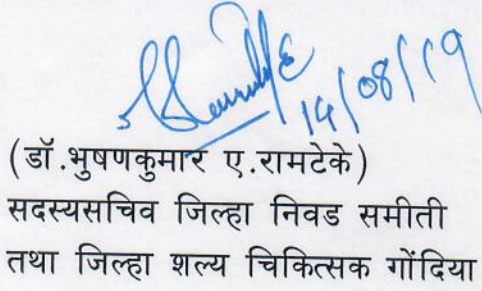 14/08/19
(डॉ.भुषणकुमार ए.रामटेके)
सदस्यसचिव जिल्हा निवड समीती
तथा जिल्हा शल्य चिकित्सक गोंदिया